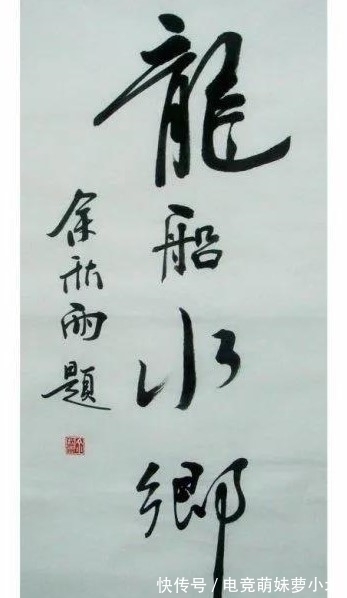 龍船水鄉
余秋雨題
快传号／电竞萌妹萝小